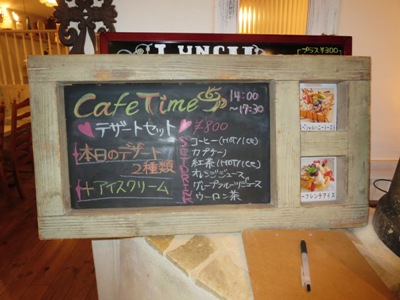 LUNCH
プラス¥300
Cafe Time
14:00
~17:30
デザートセット ¥800
本日のデザート
2種類
+アイスクリーム
SET DRINK
コーヒー(HOT/ICE)
カプチーノ
紅茶(HOT/ICE)
オレンジジュース
グレープフルーツジュース
ウーロン茶